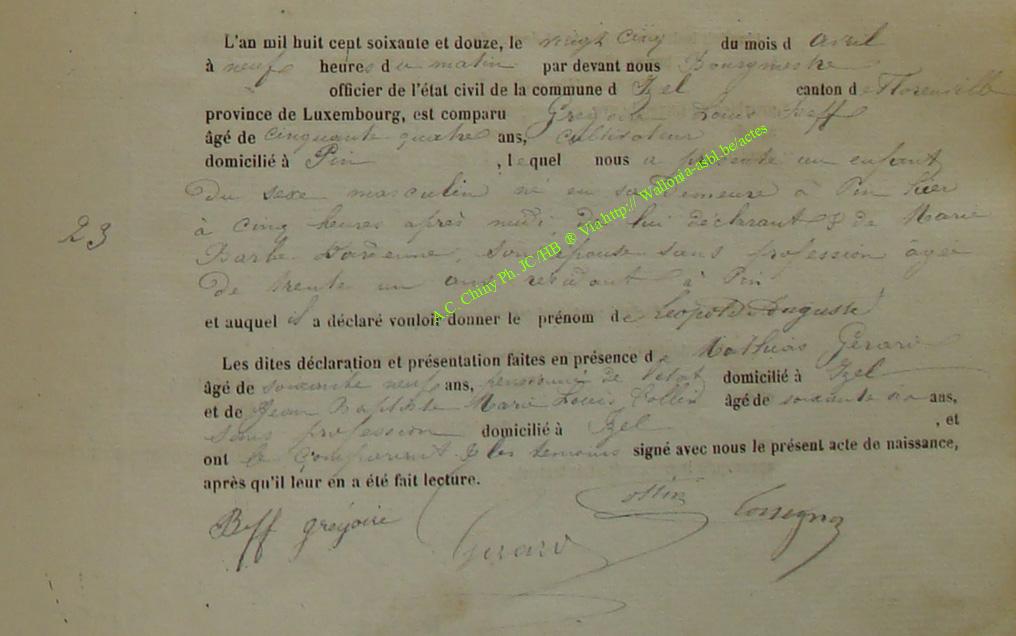 L'an mil huit cent soixante et douze, le vingt cinq du mois d avril
à neuf heures du matin par devant nous Bourgmestre
officier de l'état civil de la commune d Izel canton de Florenville
province de Luxembourg, est comparu Grégoire Louis Beff
âgé de cinquante quatre ans, cultivateur
domicilié à Pin , lequel nous a présenté un enfant
du sexe masculin né en sa demeure à Pin hier
23
à cinq heures après midi de lui déclarant & de Marie
Barbe, son épouse sans profession âgée
de trente un ans résidant à Pin
et auquel il a déclaré vouloir donner le prénom de Léopold Auguste
Les dites déclaration et présentation faites en présence de Mathias Gérard
âgé de soixante neuf ans, pensionné de l'état domicilié à Izel
et de Jean Baptiste Marie Louis Collin âgé de soixante ans,
sans profession domicilié à Izel , et
ont le comparant & les témoins signé avec nous le présent acte de naissance,
après qu'il leur en a été fait lecture.
Beff grégoire
Gérard
A.C. Chiny Ph. JC/HB ® Via http:// Wallonia-asbl.be/actes